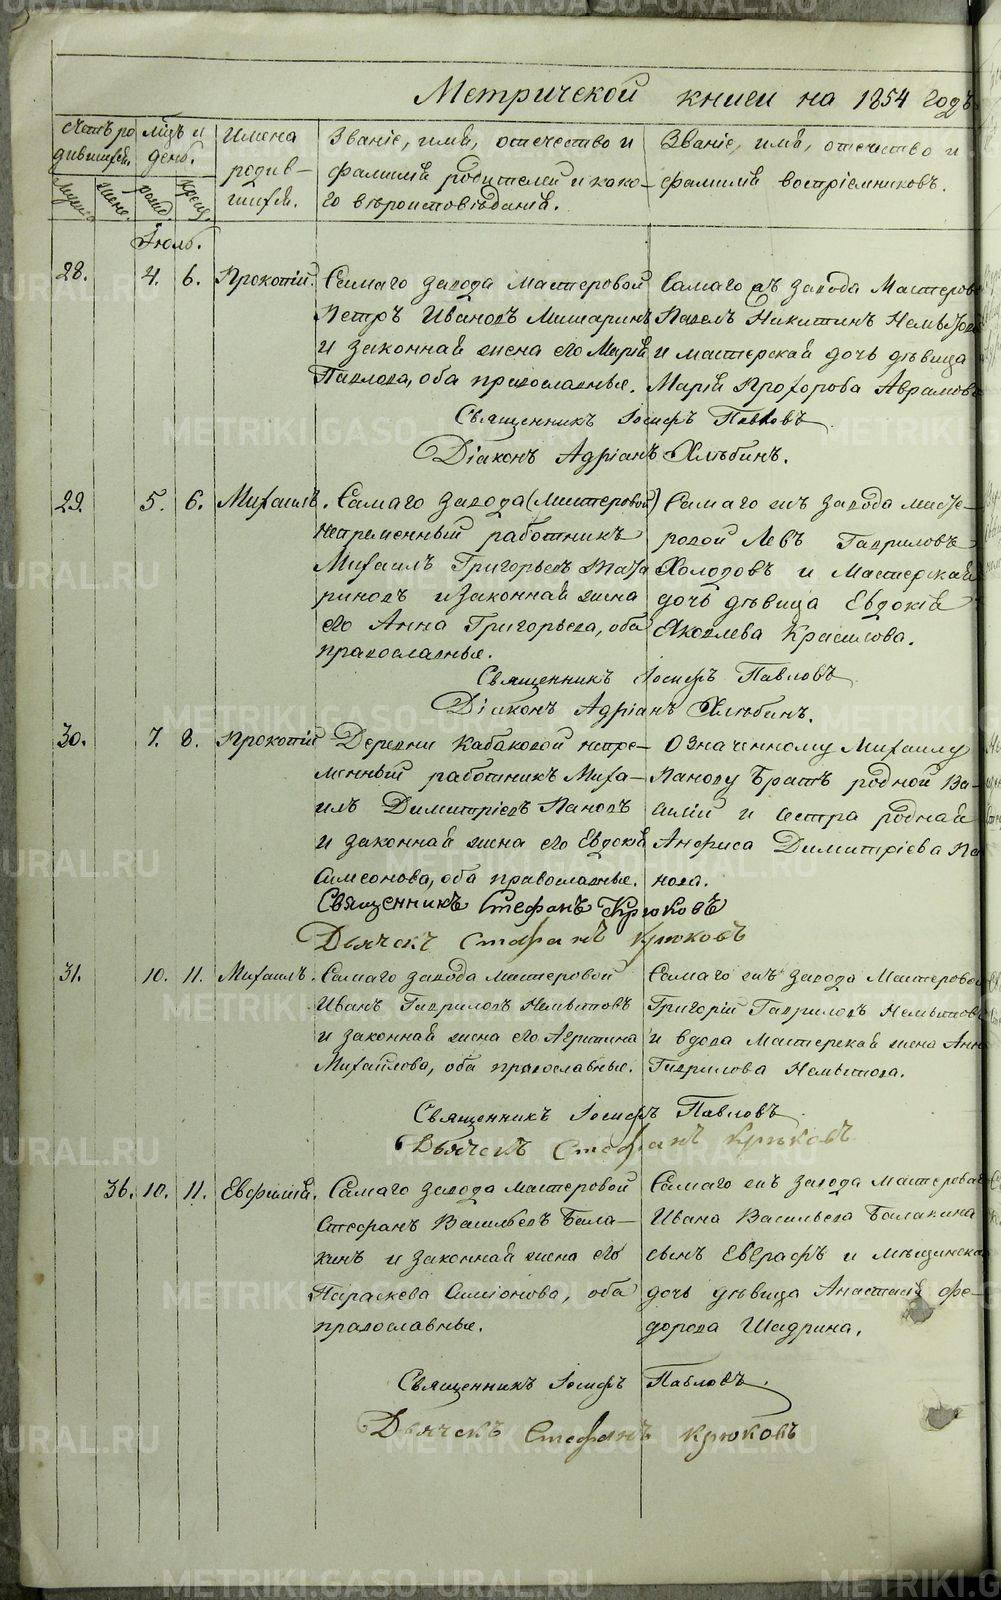 Метрической книги на 1854 годъ
Счетъ ро дившихся. Мужеска Женс.
Мѣсяцъ и день. рожд. крещ.
Имена родив- шихся.
Званіе, имя, отечество и фамилія родителей и како- го вѣроисповѣданія.
Званіе, имя, отечество и фамилія воспріемниковъ.
Іюль.
28. 4. 6. Прокопій.
Самаго завода мастеровой
Петръ Ивановъ Мишаринъ
и законная жена его Марія
Павлова, оба православные.
Самаго жъ завода Мастерово
Павелъ Никитинъ
и мастерская дочь дѣвица
Марія Прохорова Аврамова
Священникъ Іосифъ Павловъ
Діаконъ Адріанъ Хлѣбинъ.
29. 5. 6. Михаилъ.
Самаго завода (мастеровой)
непременный работникъ
Михаилъ Григорьевъ Тата
риновъ и законная жена
его Анна Григорьева, оба
православные.
Самаго жъ завода масте-
ровой Левъ Гавриловъ
Холодовъ и Мастерская
дочь дѣвица Евдокія
Яковлева Красилова.
Священникъ Іосифъ Павловъ
Діаконъ Адріанъ Хлѣбинъ.
30. 7. 8. Прокопій
Деревни Кабаковой непре-
менный работникъ Миха-
илъ Димитріевъ Пановъ
и законная жена его Евдокія
Симеонова, оба православные.
Означенному Михаилу
Панову братъ родной Ва-
силій и сестра родная
Анфиса Димитріева Па
нова.
Священникъ Стефанъ Крюковъ
Дьячекъ Стефанъ Крюковъ
31. 10. 11. Михаилъ.
Самаго завода мастеровой
Иванъ Гавриловъ Немытовъ
и законная жена его Агрипина
Михайлова, оба православные.
Самаго жъ завода Мастеровой
Григорій Гавриловъ Немытовъ
и вдова мастерская жена Анна
Гаврилова Немытова.
Священникъ Іосифъ Павловъ
Дьячекъ Стефанъ Крюковъ
36. 10. 11. Евфимія.
Самаго завода мастеровой
Стефанъ Васильевъ Бала-
кинъ и законная жена его
Параскева Симіонова, оба
православные.
Самаго жъ завода мастероваго
Ивана Васильева Балакина
сынъ Евграфъ и мѣщанская
дочь дѣвица Анастасія Фе-
дорова Шадрина.
Священникъ Іосифъ Павловъ.
Дьячекъ Стефанъ Крюковъ
METRIKI.GASO-URAL.RU